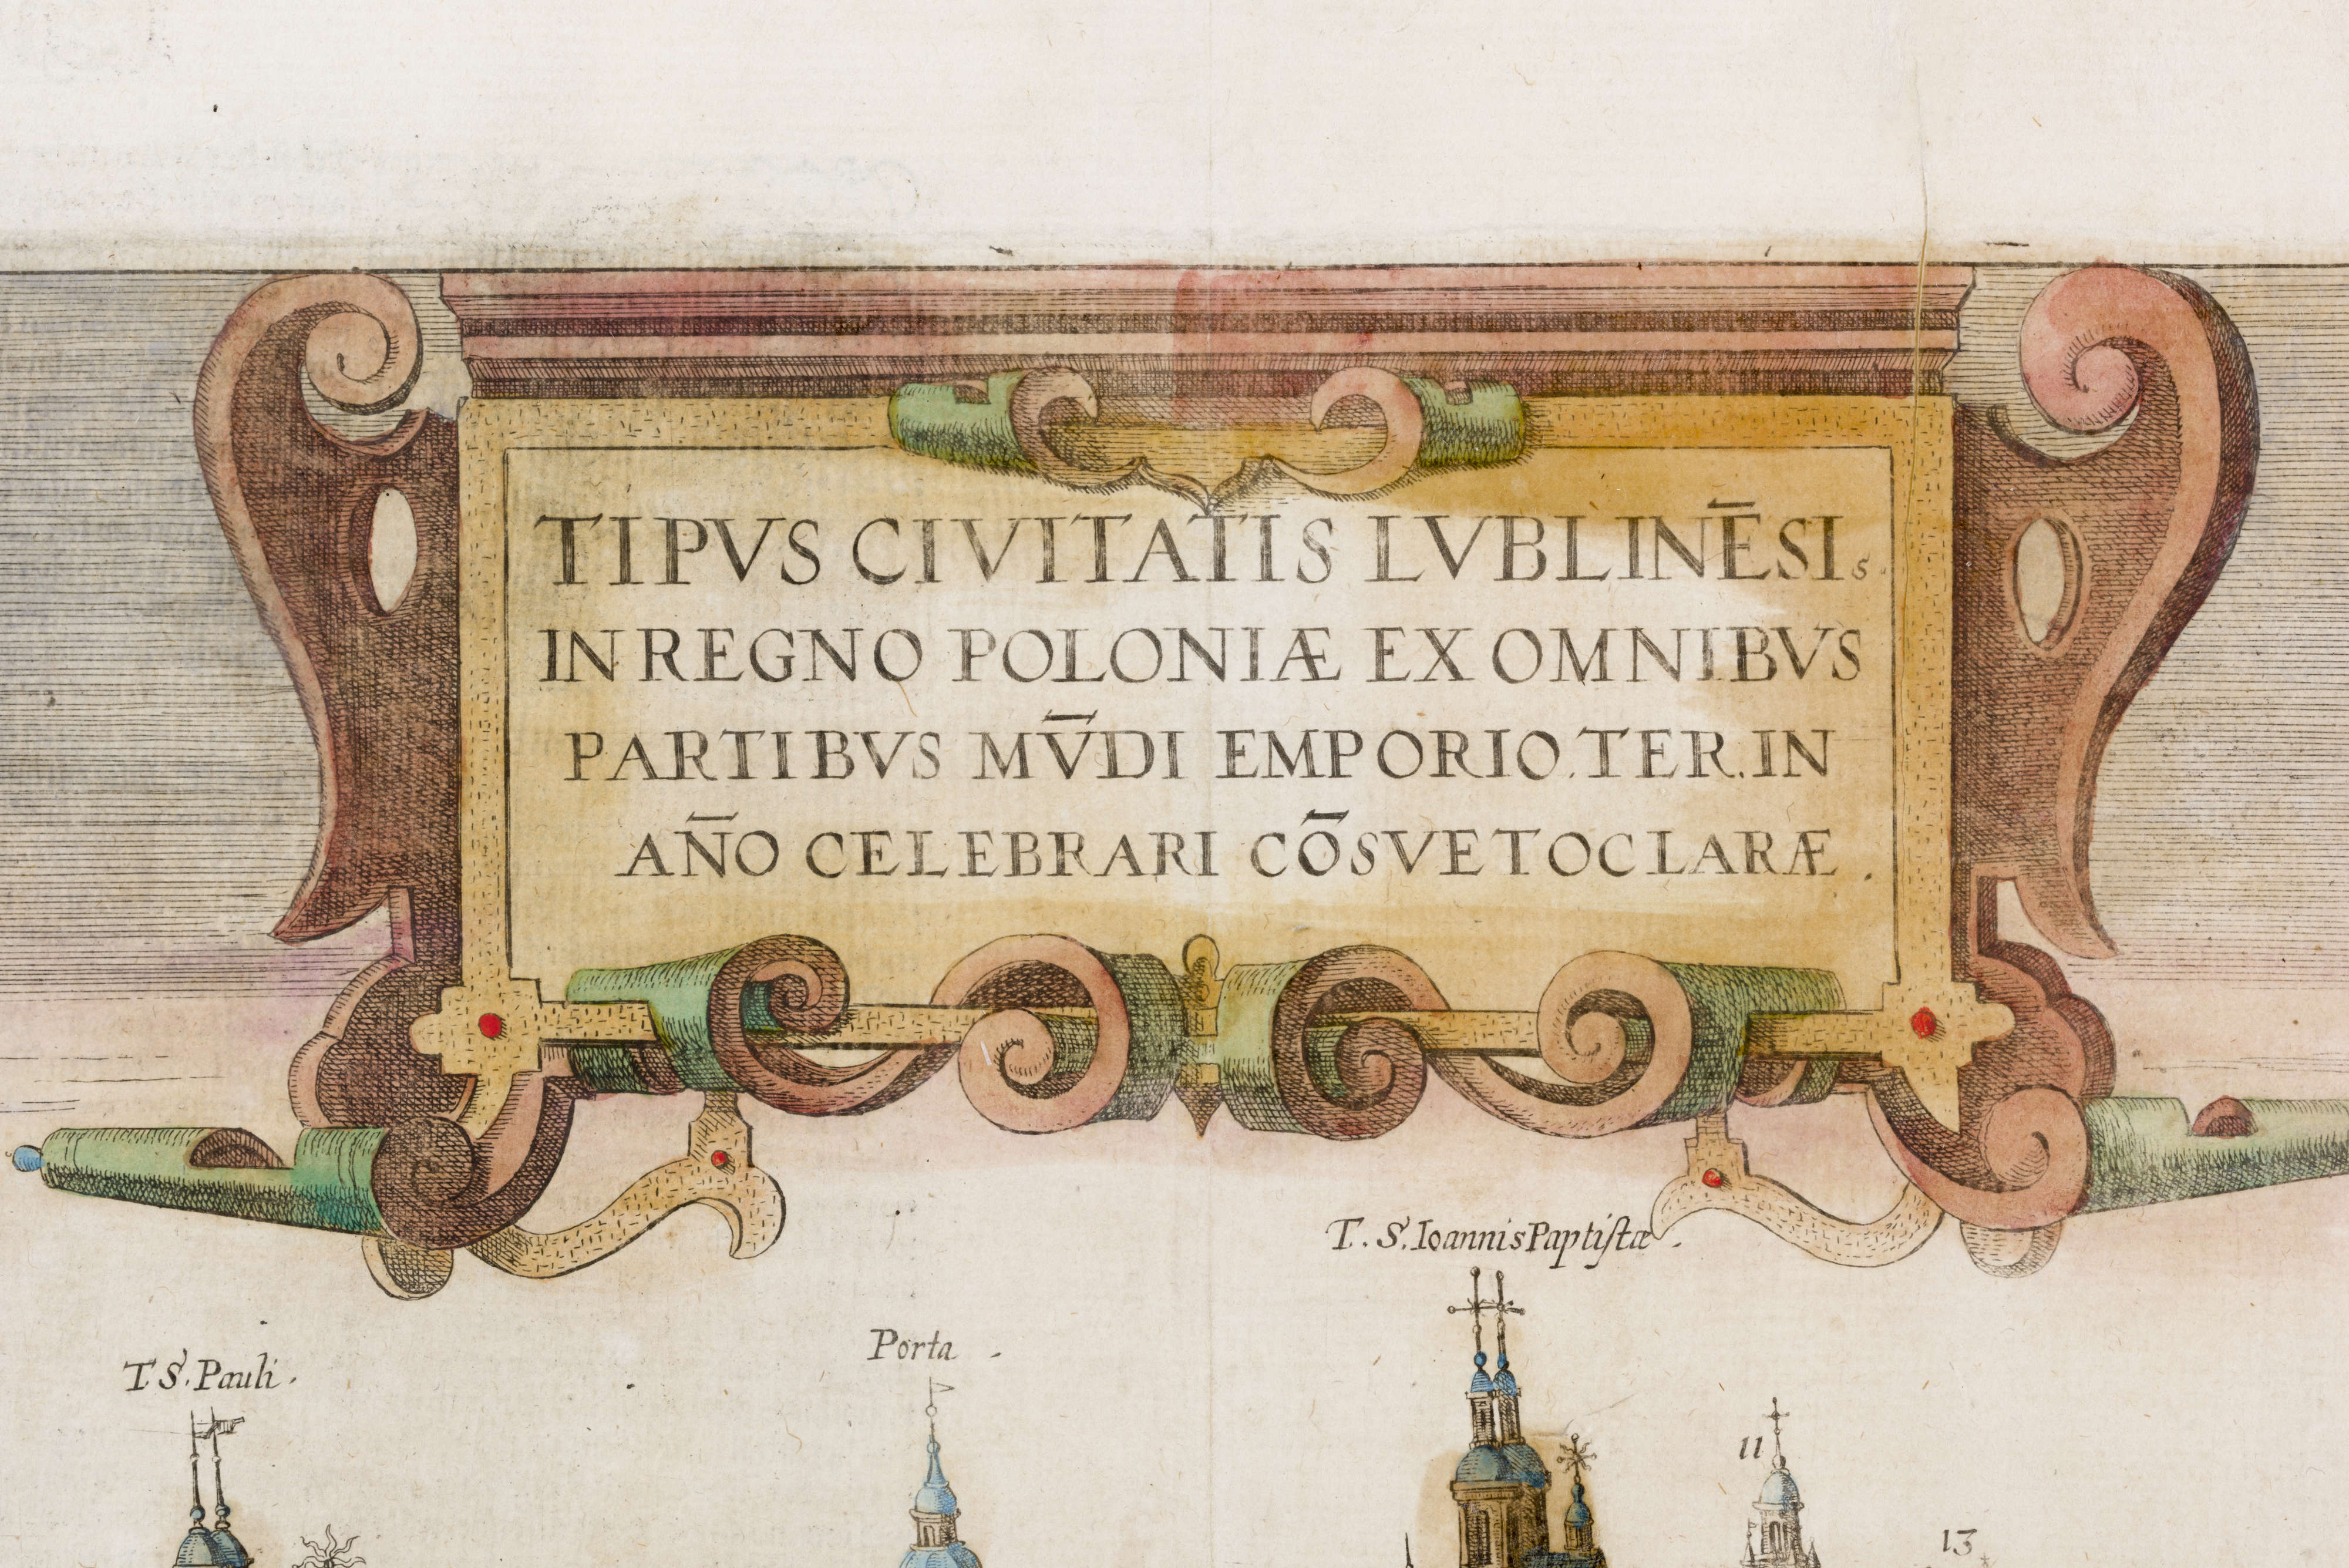 TIPVS CIVITATIS LVBLINĒSIs.
IN REGNO POLONIÆ EX OMNIBVS
PARTIBVS MV̄DI EMPORIO.TER.IN
AN̄O CELEBRARI CŌSVETO CLARÆ.
T. S. Ioannis Paptiſtæ.
Porta.
T.S.Pauli.
11
13